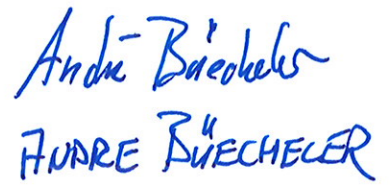 André Büecheler
ANDRE BÜECHELER